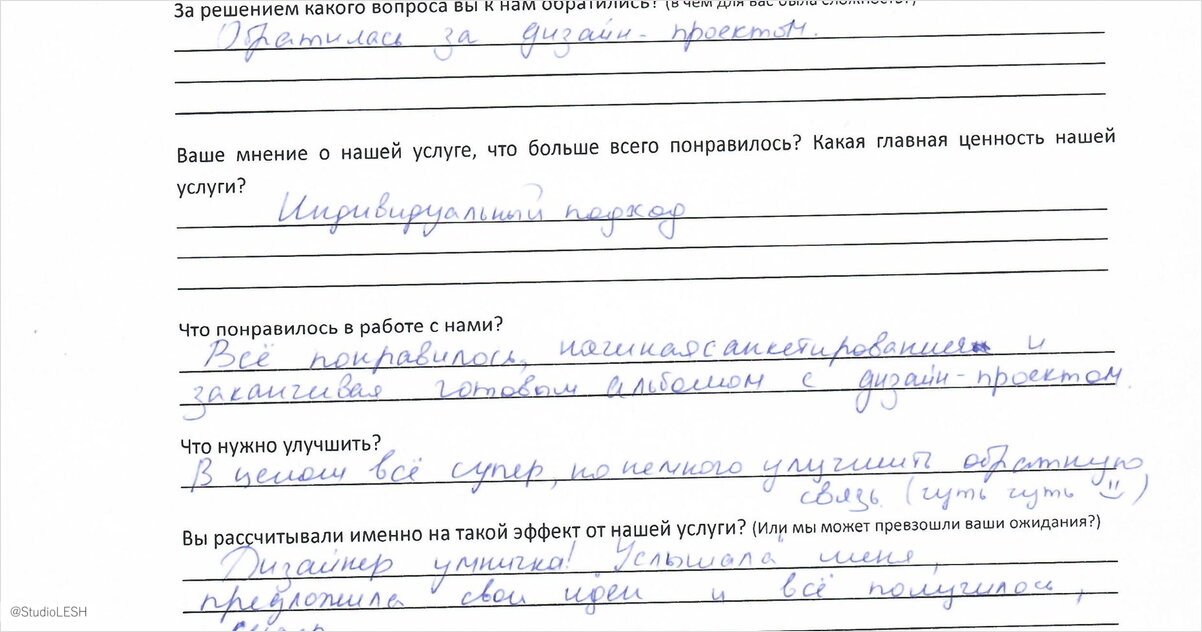 За решением какого вопроса вы к нам обратились? (В чем для вас была сложность?)
Обратилась за дизайн-проектом.
Ваше мнение о нашей услуге, что больше всего понравилось? Какая главная ценность нашей
услуги?
Индивидуальный подход
Что понравилось в работе с нами?
Всё понравилось, начиная с анкетирования и
заканчивая готовым альбомом с дизайн-проектом.
Что нужно улучшить?
В целом всё супер, но немного улучшить обратную
связь (чуть чуть
Вы рассчитывали именно на такой эффект от нашей услуги? (Или мы может превзошли ваши ожидания?)
Дизайнер умничка! Услышала меня,
предложила свои идеи и всё получилось,
супер
@StudioLESH